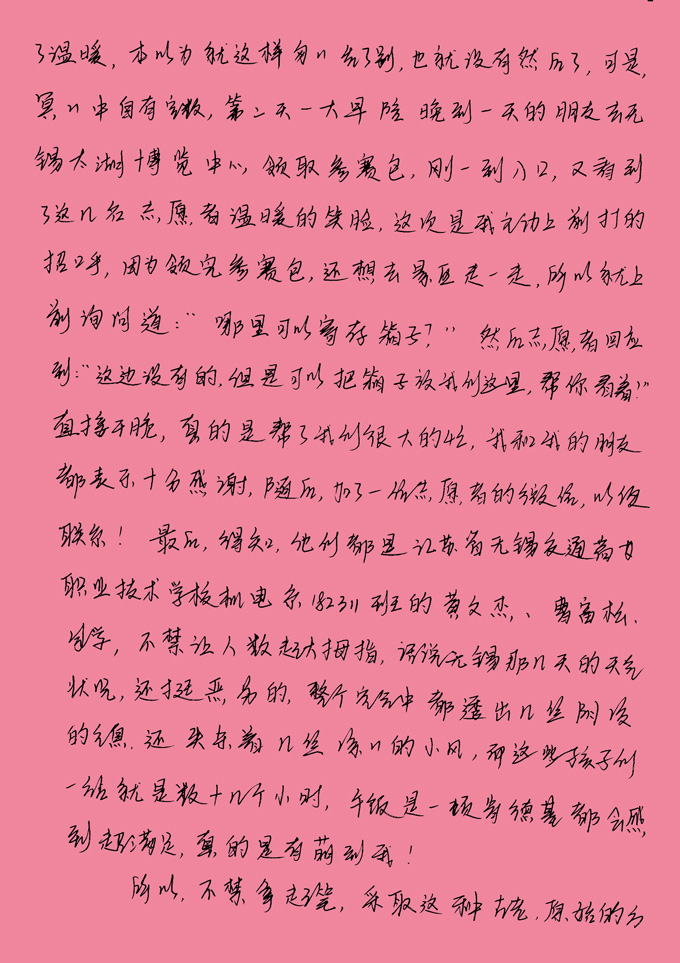 了温暖，本以为就这样匆匆告了别，也就没有然后了，可是，
冥冥中自有定数，第二天一大早陪晚到一天的朋友去无
锡太湖博览中心领取参赛包，刚一到入口，又看到
了这几名志愿者温暖的笑脸，这次是我主动上前打的
招呼，因为领完参赛包，还想去景区走一走，所以就上
前询问道：“哪里可以寄存箱子？”然后志愿者回应
到：“这边没有的，但是可以把箱子放我们这里，帮你看着！”
直接干脆，真的是帮了我们很大的忙，我和我的朋友
都表示十分感谢，随后，加了一位志愿者的微信，以便
联系！最后，得知，他们都是江苏省无锡交通高等
职业技术学校机电系182311班的黄文杰、曹富松、
同学，不禁让人数起大拇指，话说无锡那几天的天气
状况，还挺恶劣的，整个空气中都透出几丝阴冷
的气息，还夹杂着几丝凉凉的小风，而这些孩子们
一站就是数十几个小时，午饭是一顿肯德基都会感
到超满足，真的是有萌到我！
所以，不禁拿起笔，采取这种古老，原始的方